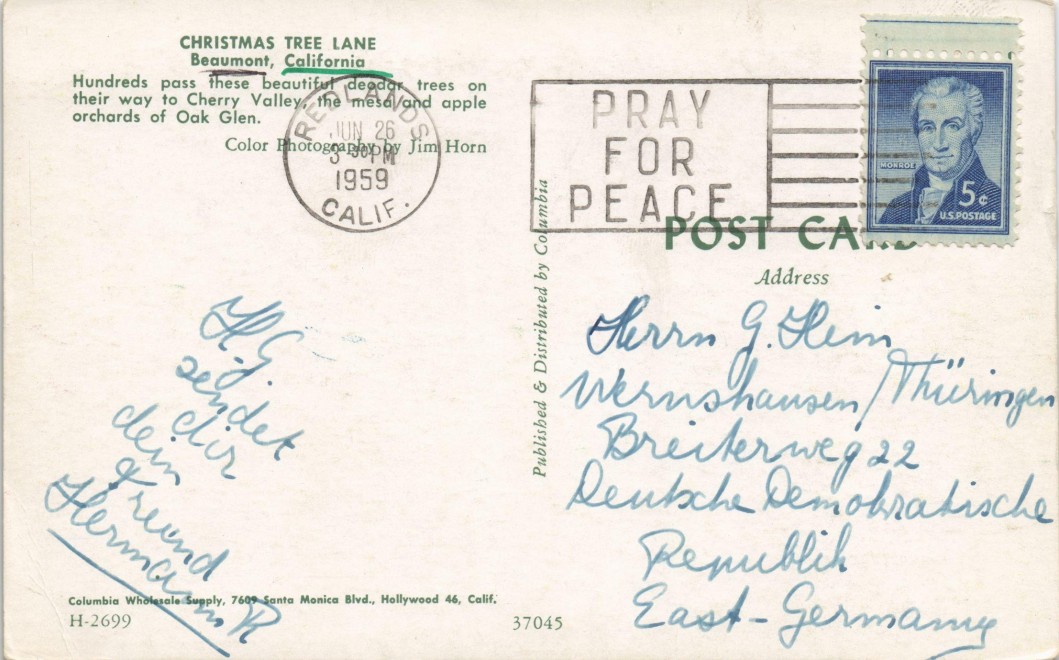 CHRISTMAS TREE LANE
Beaumont, California
Hundreds pass these beautiful deodar trees on
their way to Cherry Valley, the mesa and apple
orchards of Oak Glen.
Color Photography by Jim Horn
REDLANDS
JUN 26
3 30 PM
1959
CALIF.
PRAY
FOR
PEACE
MONROE
5¢
U.S. POSTAGE
POST CARD
Address
Published & Distributed by Columbia
H. G.
sendet
dir
dein
Freund
Hermann R
Herrn G. Heim
Wernshausen/Thüringen
Breiterweg 22
Deutsche Demokratische
Republik
East-Germany
Columbia Wholesale Supply, 7609 Santa Monica Blvd., Hollywood 46, Calif.
H-2699
37045